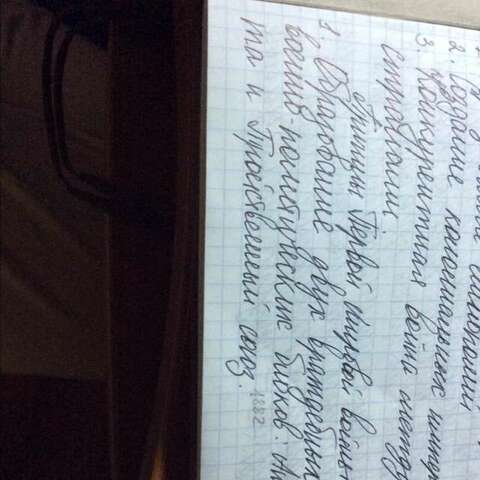 монополий
2. Создание колониальных импер
3. Конкурентная война между
странами.
Причины Первой мировой войны
1. Образование двух враждебных
военно-политических блоков: Ан
та и Тройственный союз. 1882